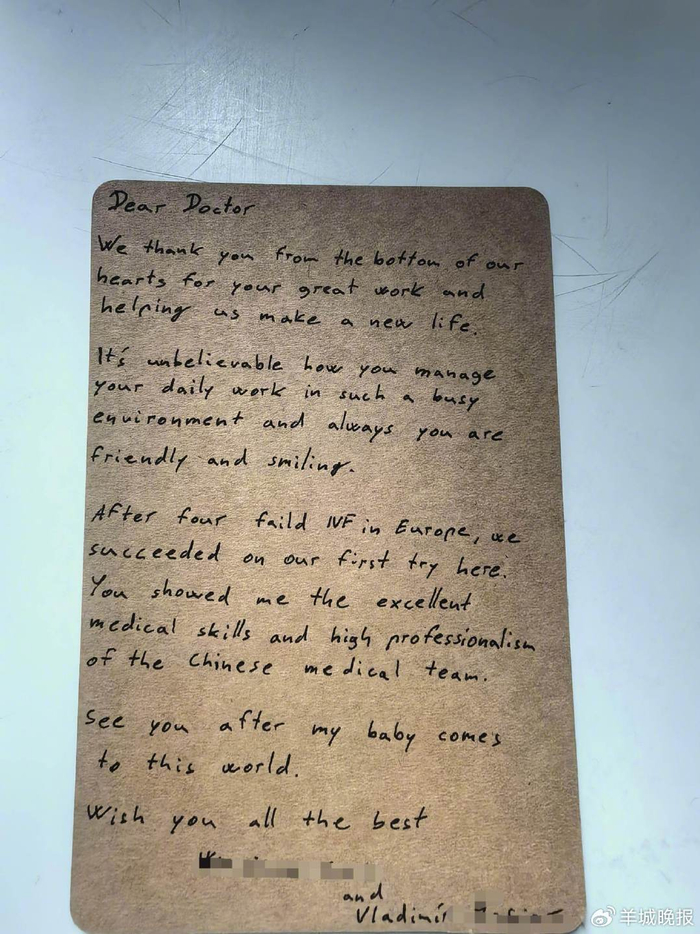 Dear Doctor
We thank you from the bottom of our
hearts for your great work and
helping us make a new life.
It's unbelievable how you manage
your daily work in such a busy
environment and always you are
friendly and smiling.
After four faild IVF in Europe, we
succeeded on our first try here.
You showed me the excellent
medical skills and high professionalism
of the Chinese medical team.
See you after my baby comes
to this world.
Wish you all the best
and
Vladimír
羊城晚报